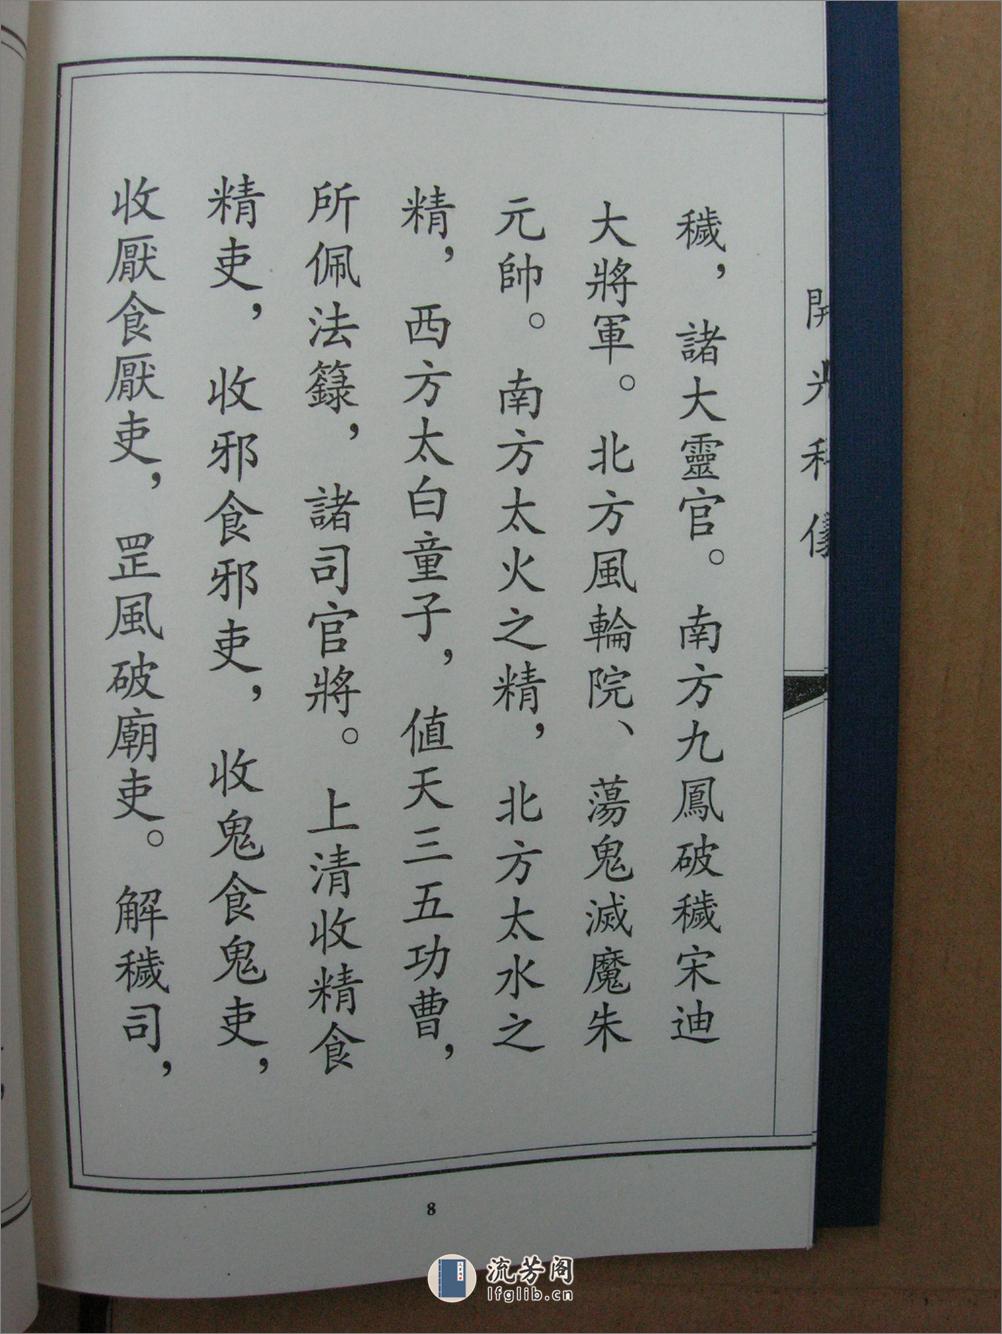 開光科儀
穢，諸大靈官。南方九鳳破穢宋迪
大將軍。北方風輪院、蕩鬼滅魔朱
元帥。南方太火之精，北方太水之
精，西方太白童子，值天三五功曹，
所佩法籙，諸司官將。上清收精食
精吏，收邪食邪吏，收鬼食鬼吏，
收厭食厭吏，罡風破廟吏。解穢司，
8
流芳阁
lfglib.cn